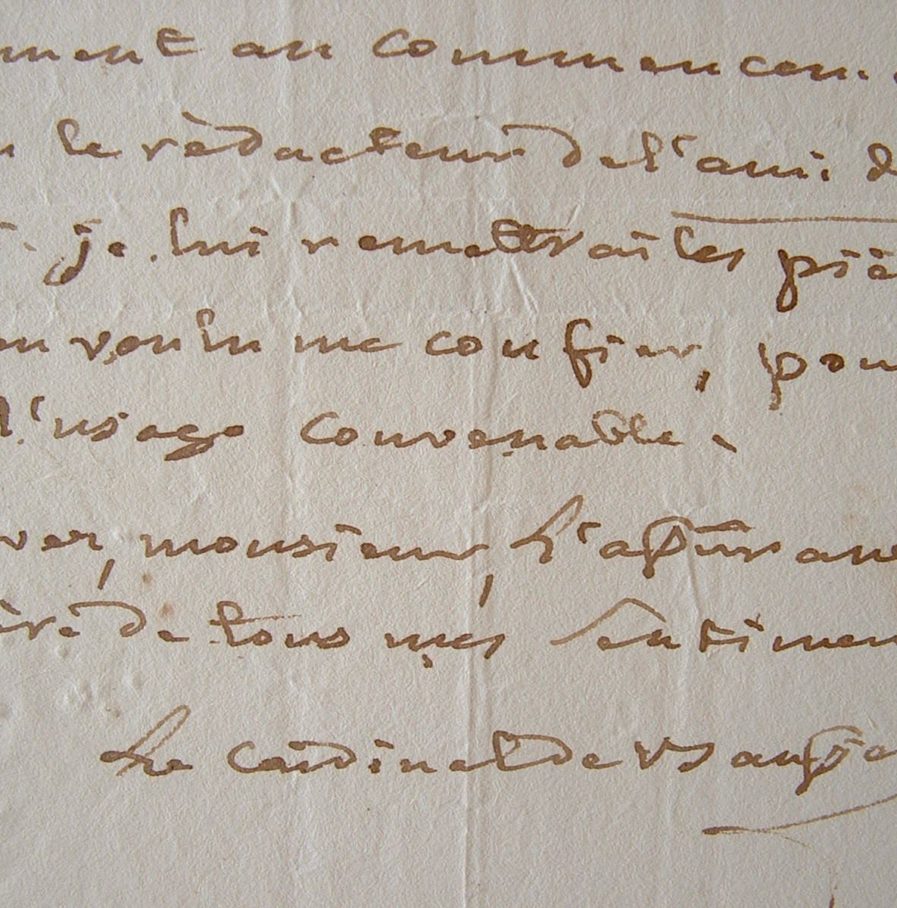 ment au commencem
le rédacteur de l'ami d
je lui remettrai les piè
voulu me confier, pou
l'usage convenable.
ver, monsieur, l'assuran
ère de tous mes sentimen
Le cardinal de